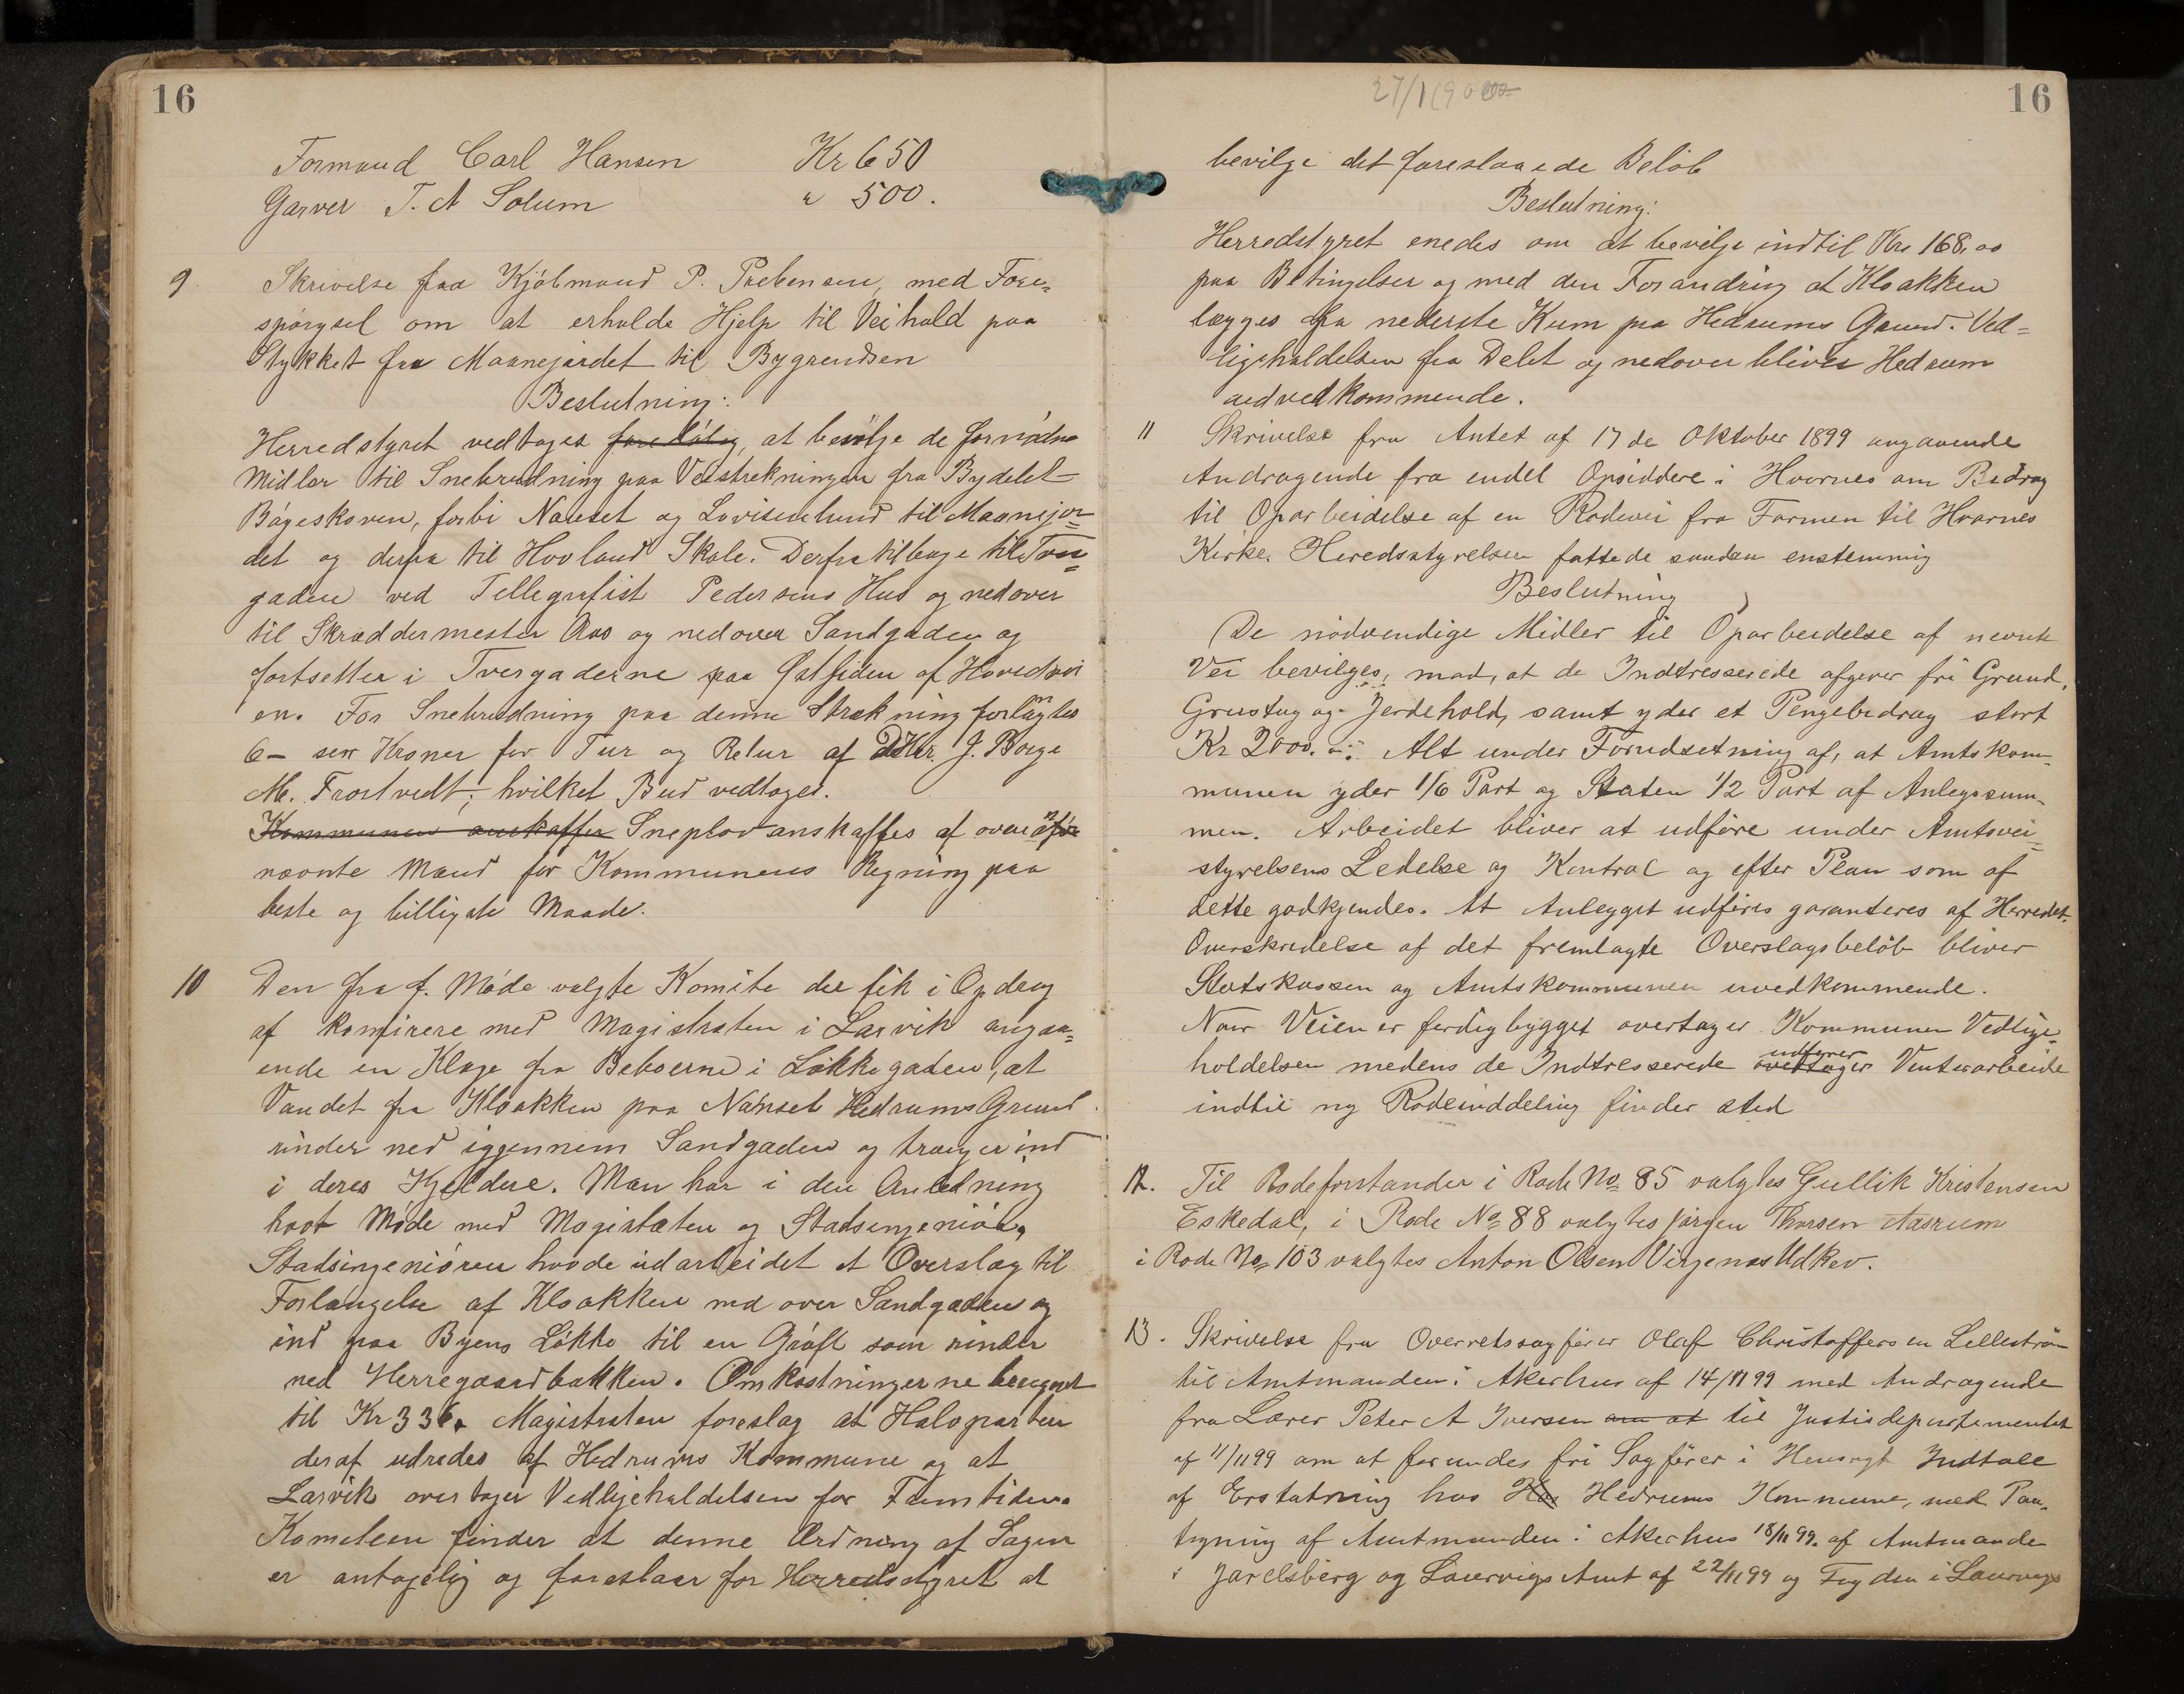 16
Formand Carl Hansen Kr 650
Garver T. A Solum " 500.
9. Skrivelse fra Kjöbmand P. Prebensen, med Fore-
spörgsel om at erholde Hjelp til Veihold paa
Stykket fra Maanejordet til Bygrendsen
Beslutning:
Herredstyret vedtoges foreløbig, at bevilge de fornødne
Midler til Snebrødning paa Veistrekningen fra Bydelet
Bögeskoven, forbi Nanset og Lovisenlund til Maanejor=
det og derfra til Hovland Skole. Derfra tilbage til Tver=
gaden ved Tellegrafist Pedersens Hus og nedover
til Skræddermester Aas og nedover Sandgaden og
fortsetter i Tvergaderne paa Østsiden af Hovedvei
en. For Snebrødning paa denne Strekning forlangtes
6- sex Kroner for Tur og Retur af DHr. J. Borge
M. Frostvedt; hvilket Bud vedtoges.
Kommunen anskaffer Sneplov anskaffes af ovenanför
nævnte Mænd for Kommunens Regning paa
beste og billigste Maade.
10 Den fra f. Möde valgte Komite der fik i Opdrag
af komfirere med Magistraten i Larvik angaa=
ende en Klage fra Beboerne i Løkkegaden, at
Vandet fra Kloakken paa Nanset Hedrums Grund
rinder ned iggennem Sandgaden og trænger ind
i deres Kjeldere. Man har i den Anledning
havt Möde med Magistraten og Stadsingeniör,
Stadsingeniören havde udarbeidet et Overslag til
Forlængelse af Kloakken ned over Sandgaden og
ind paa Byens Løkke til en Gröft som rinder
ned Herregaardbakken. Omkostningerne beregnet
til Kr 336. Magistraten foreslag at Halvparten
deraf udredes af Hedrums Kommune og at
Larvik overtager Vedligeholdelsen for Fremtiden.
Komiteen finder at denne Ordning af Sagen
er antagelig og foreslaar for Herredsstyret at
27/1 1900
16
bevilge det foreslagede Belöb
Beslutning:
Herredstyret enedes om at bevilge indtil Kr. 168,00
paa Betingelser og med den Forandring at Kloakken
lægges fra nederste Kum paa Hedrums Grund. Ved=
ligeholdelsen fra Delet og nedover bliver Hedrum
uedvedkommende.
11 Skrivelse fra Amtet af 17de Oktober 1899 angaaende
Andragende fra endel Opsiddere i Hvarnes om Bidrag
til Oparbeidelse af en Rodevei fra Farmen til Hvarnes
Kirke. Heredsstyrelsen fattede saadan enstemmig
Beslutning
De nödvendige Midler til Oparbeidelse af nevnte
Vei bevilges, mod, at de Indtresserede afgiver fri Grund,
Grustag og Jerdehold, samt yder et Pengebidrag stort
Kr 2000.00. Alt under Forudsetning af, at Amtskom-
munen yder 1/6 Part og Staten 1/2 Part af Anlegssum-
men. Arbeidet bliver at udföre under Amtsvei
styrelsens Ledelse og Kontrol og efter Plan som af
dette godkjendes. At Anlegget udföres garanteres af Herredet.
Overskridelse af det fremlagte Overslagsbelöb bliver
Statskassen og Amtskommunen uvedkommende.
Naar Veien er ferdigbygget overtager Kommunen Vedlige-
holdelsen medens de Indtresserede overtager udförer Vinterarbeide
indtil ny Rodeinddeling finder sted
12. Til Rodeforstander i Rode No 85 valgtes Gullik Kristensen
Eskedal, i Rode No 88 valgtes Jörgen Thorsen Aasrum
i Rode No 103 valgtes Anton Olsen Virgenas Udkev.
13. Skrivelse fra Overretssagförer Olaf Christoffersen Lilleström
til Amtmanden i Akerhus af 14/11 99 med Andragende
fra Lærer Peter A Iversen om at til Justisdepartementet
af 11/11 99 om at forundes fri Sagförer i Hensyn Indtale
af Erstatning hos Hos Hedrums Kommune, med Paa-
tegning af Amtmanden i Akerhus 18/11 99. af Amtmande
i Jarelsberg og Laurvigs Amt af 22/11 99 og Fogden i Laurvigs